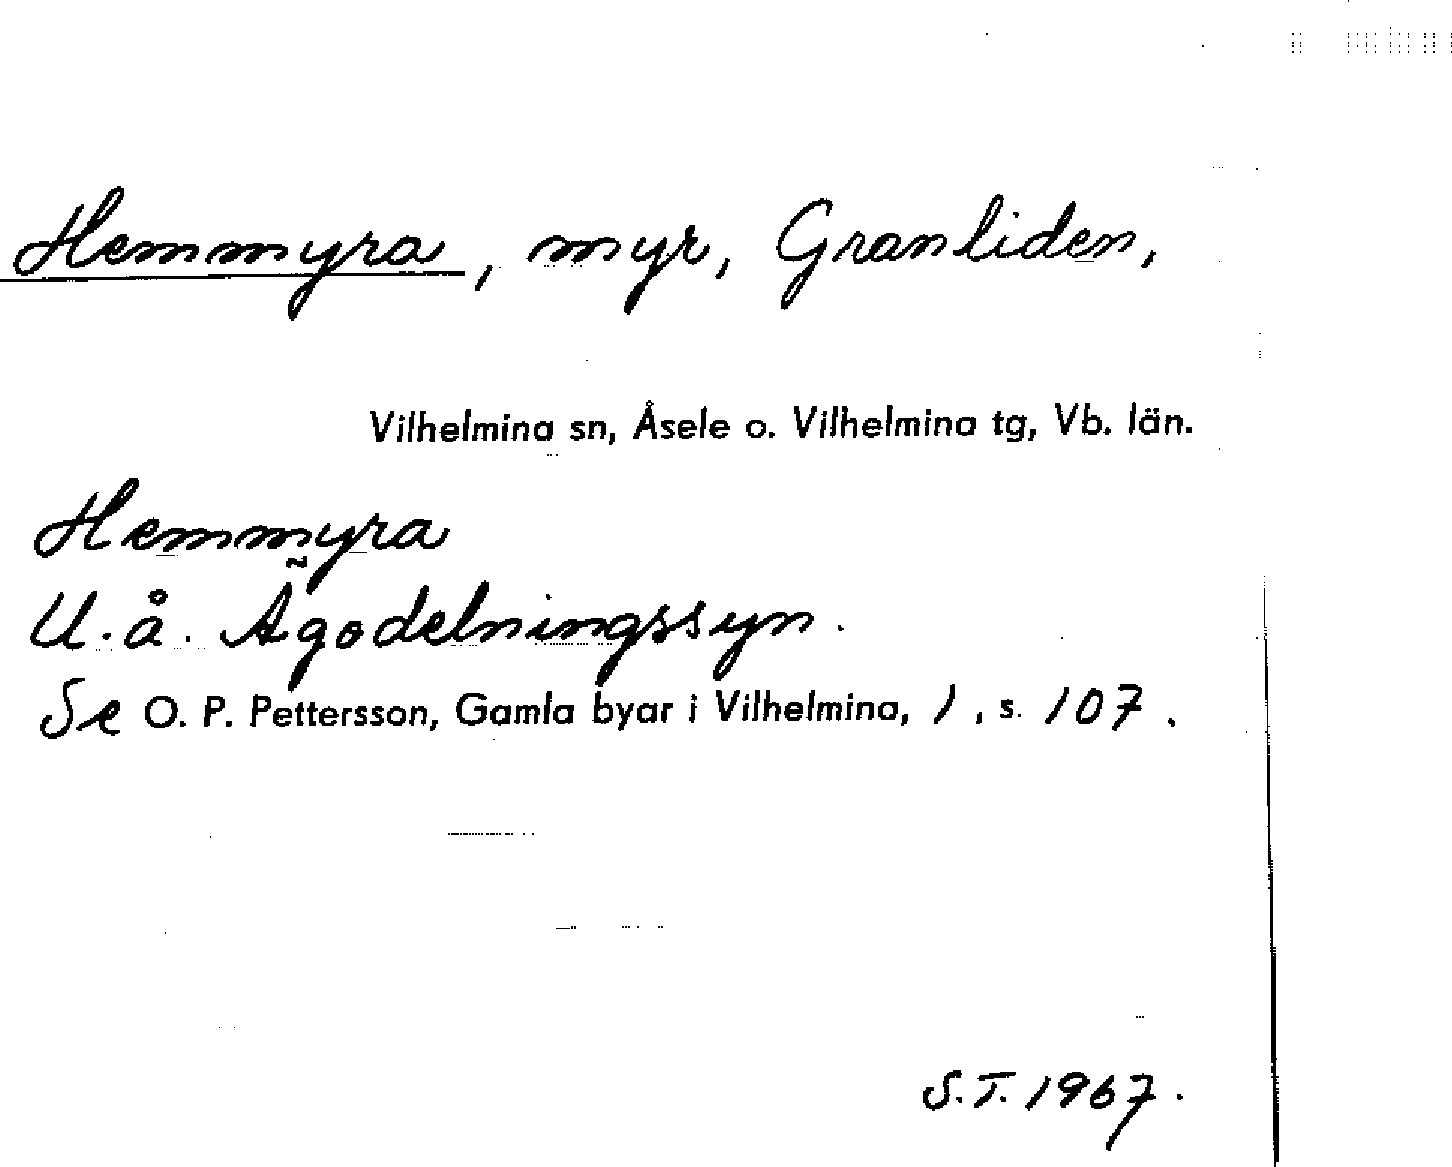 Hemmyra, myr, Granliden,
Vilhelmina sn, Åsele o. Vilhelmina tg, Vb. län.
Hemmyra
U.å. Ägodelningssyn.
Se O. P. Pettersson, Gamla byar i Vilhelmina, 1, s. 107.
S.T. 1967.